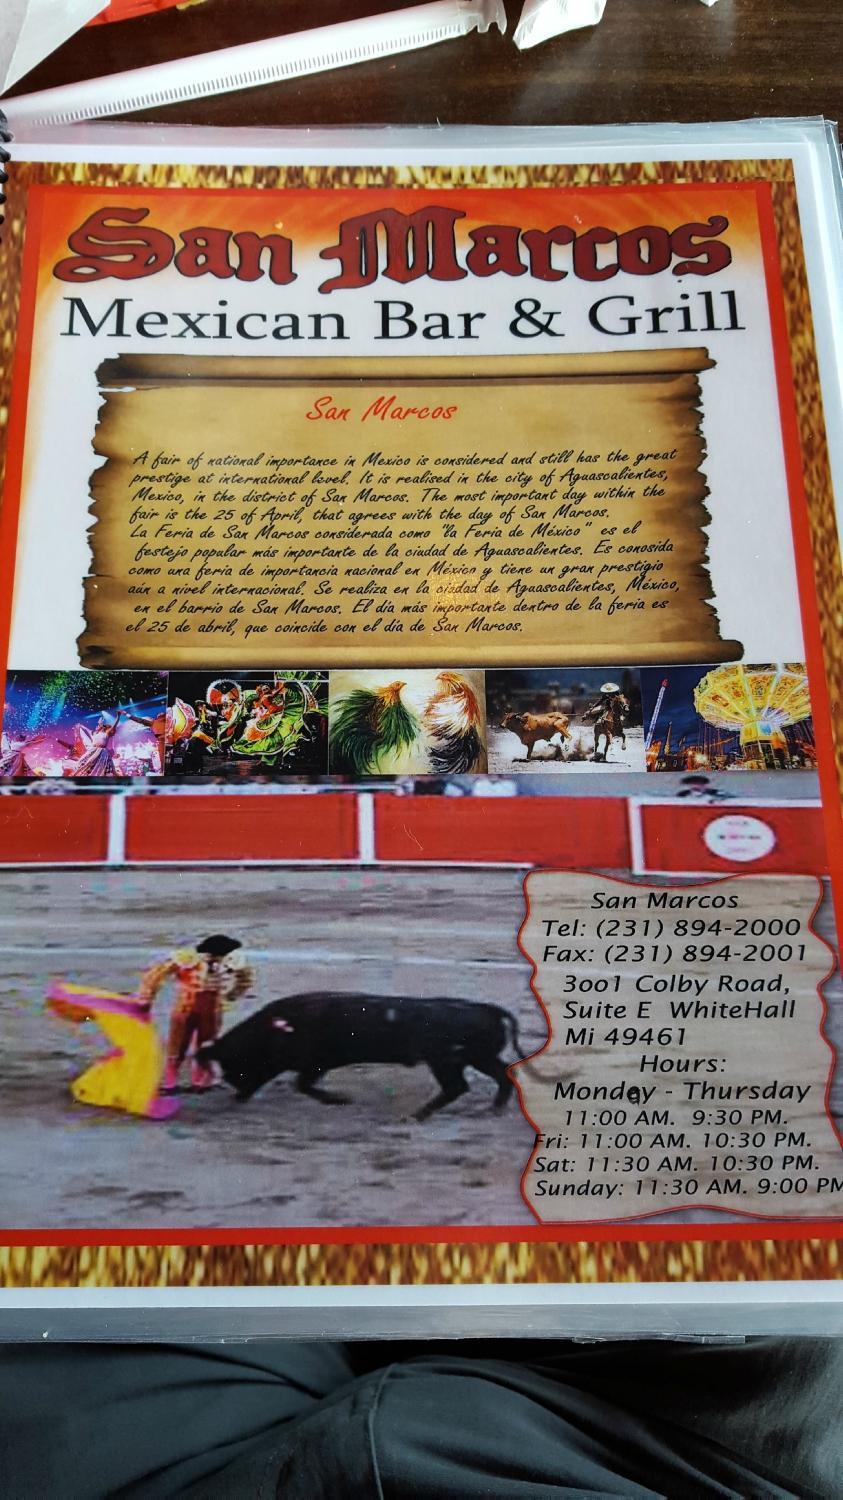 San Marcos
Mexican Bar & Grill
San Marcos
A fair of national importance in Mexico is considered and still has the great
prestige at international level. It is realised in the city of Aguascalientes,
Mexico, in the district of San Marcos. The most important day within the
fair is the 25 of April, that agrees with the day of San Marcos.
La Feria de San Marcos considerada como "la Feria de México" es el
festejo popular más importante de la ciudad de Aguascalientes. Es conosida
como una feria de importancia nacional en México y tiene un gran prestigio
aún a nivel internacional. Se realiza en la ciudad de Aguascalientes, México,
en el barrio de San Marcos. El día más importante dentro de la feria es
el 25 de abril, que coincide con el día de San Marcos.
San Marcos
Tel: (231) 894-2000
Fax: (231) 894-2001
3oo1 Colby Road,
Suite E WhiteHall
Mi 49461
Hours:
Monday - Thursday
11:00 AM. 9:30 PM.
Fri: 11:00 AM. 10:30 PM.
Sat: 11:30 AM. 10:30 PM.
Sunday: 11:30 AM. 9:00 PM